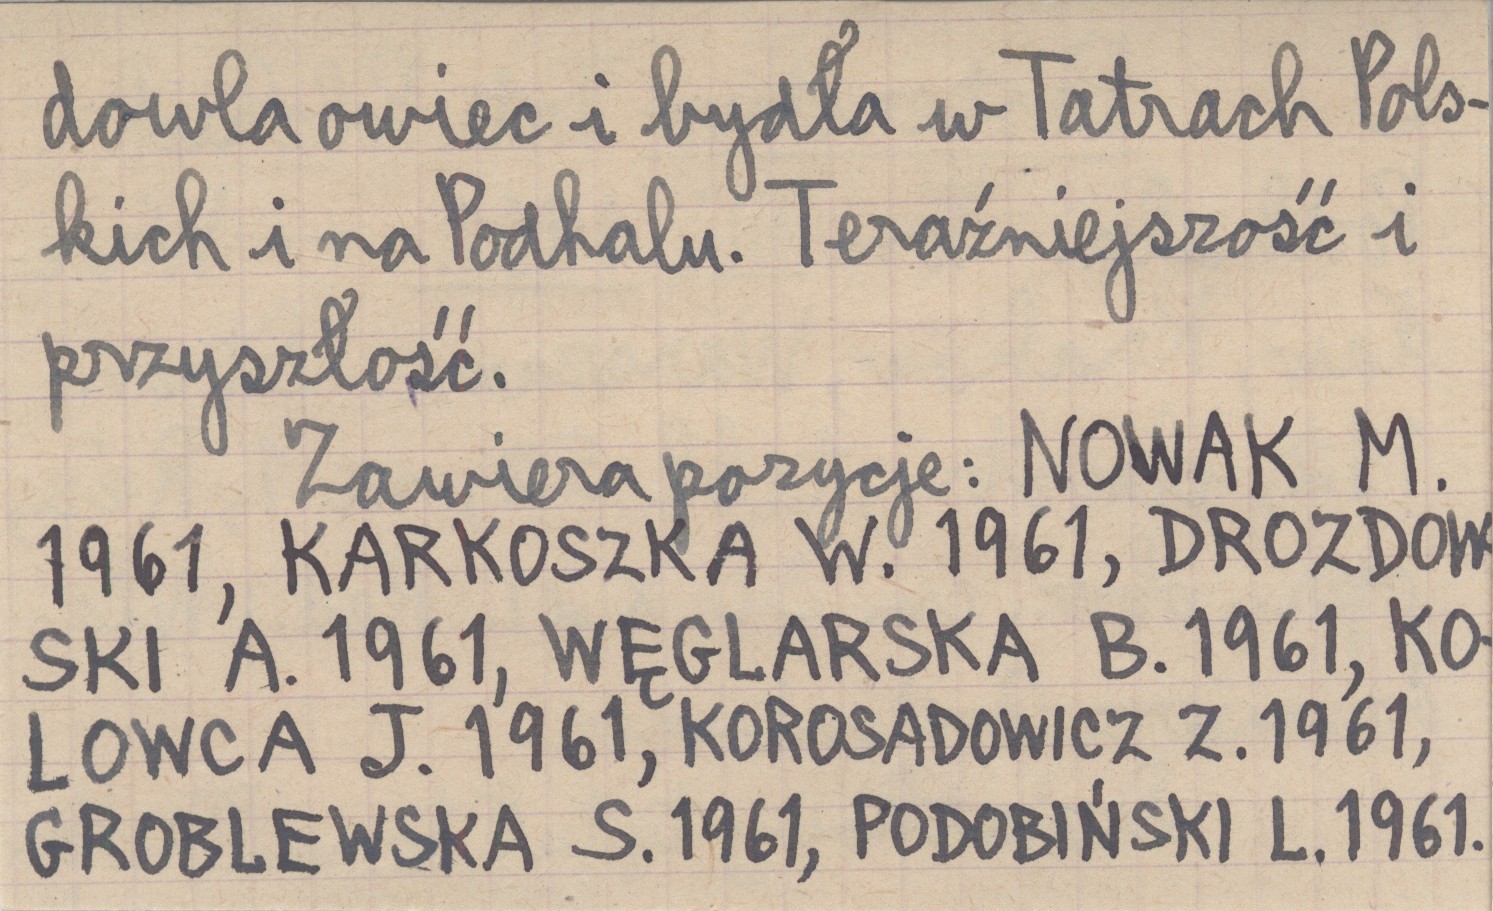 dowla owiec i bydła w Tatrach Pols-
kich i na Podhalu. Teraźniejszość i
przyszłość.
Zawiera pozycje: NOWAK M.
1961, KARKOSZKA W. 1961, DROZDOW
SKI A. 1961, WĘGLARSKA B. 1961, KO-
LOWCA J. 1961, KOROSADOWICZ Z. 1961,
GROBLEWSKA S. 1961, PODOBIŃSKI L. 1961.